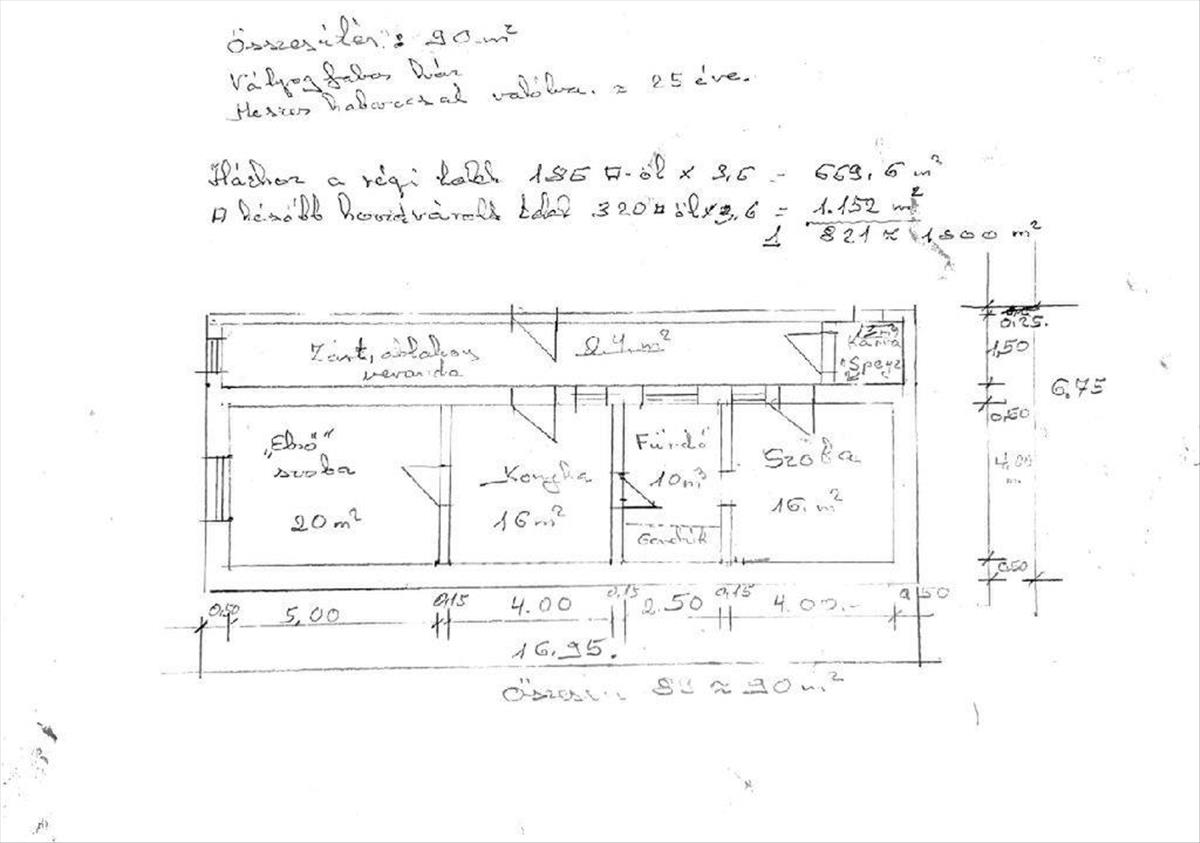 Összesítés: 90 m²
Vályogfalas ház
Meszes habarccsal ≈ 25 éve.
Házhoz a régi telek 186 □-öl × 3,6 = 669,6 m²
A később hozzávásárolt telek 320 □ öl × 3,6 = 1.152 m²
1 821 ≈ 1800 m²
Zárt, ablakos
veranda
24 m²
Kamra
"Spejz"
0,25.
1,50
6,75
0,50
4,00
m
0,50
„Első"
szoba
20 m²
Konyha
16 m²
Fürdő
10 m³
Szoba
16. m²
0,50
5,00
0,15
4.00
0,15
2.50
0,15
4.00.-
0,50
16.95.
Összesen ≈ 90 m²